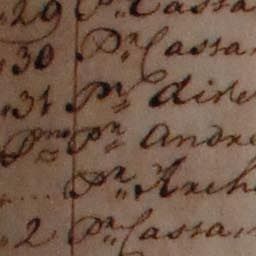 29 Pr Cassa
30 Pr Cassa
31 Pr
Pmo Pr Andre
Pr Arch
2 Pr Cassa